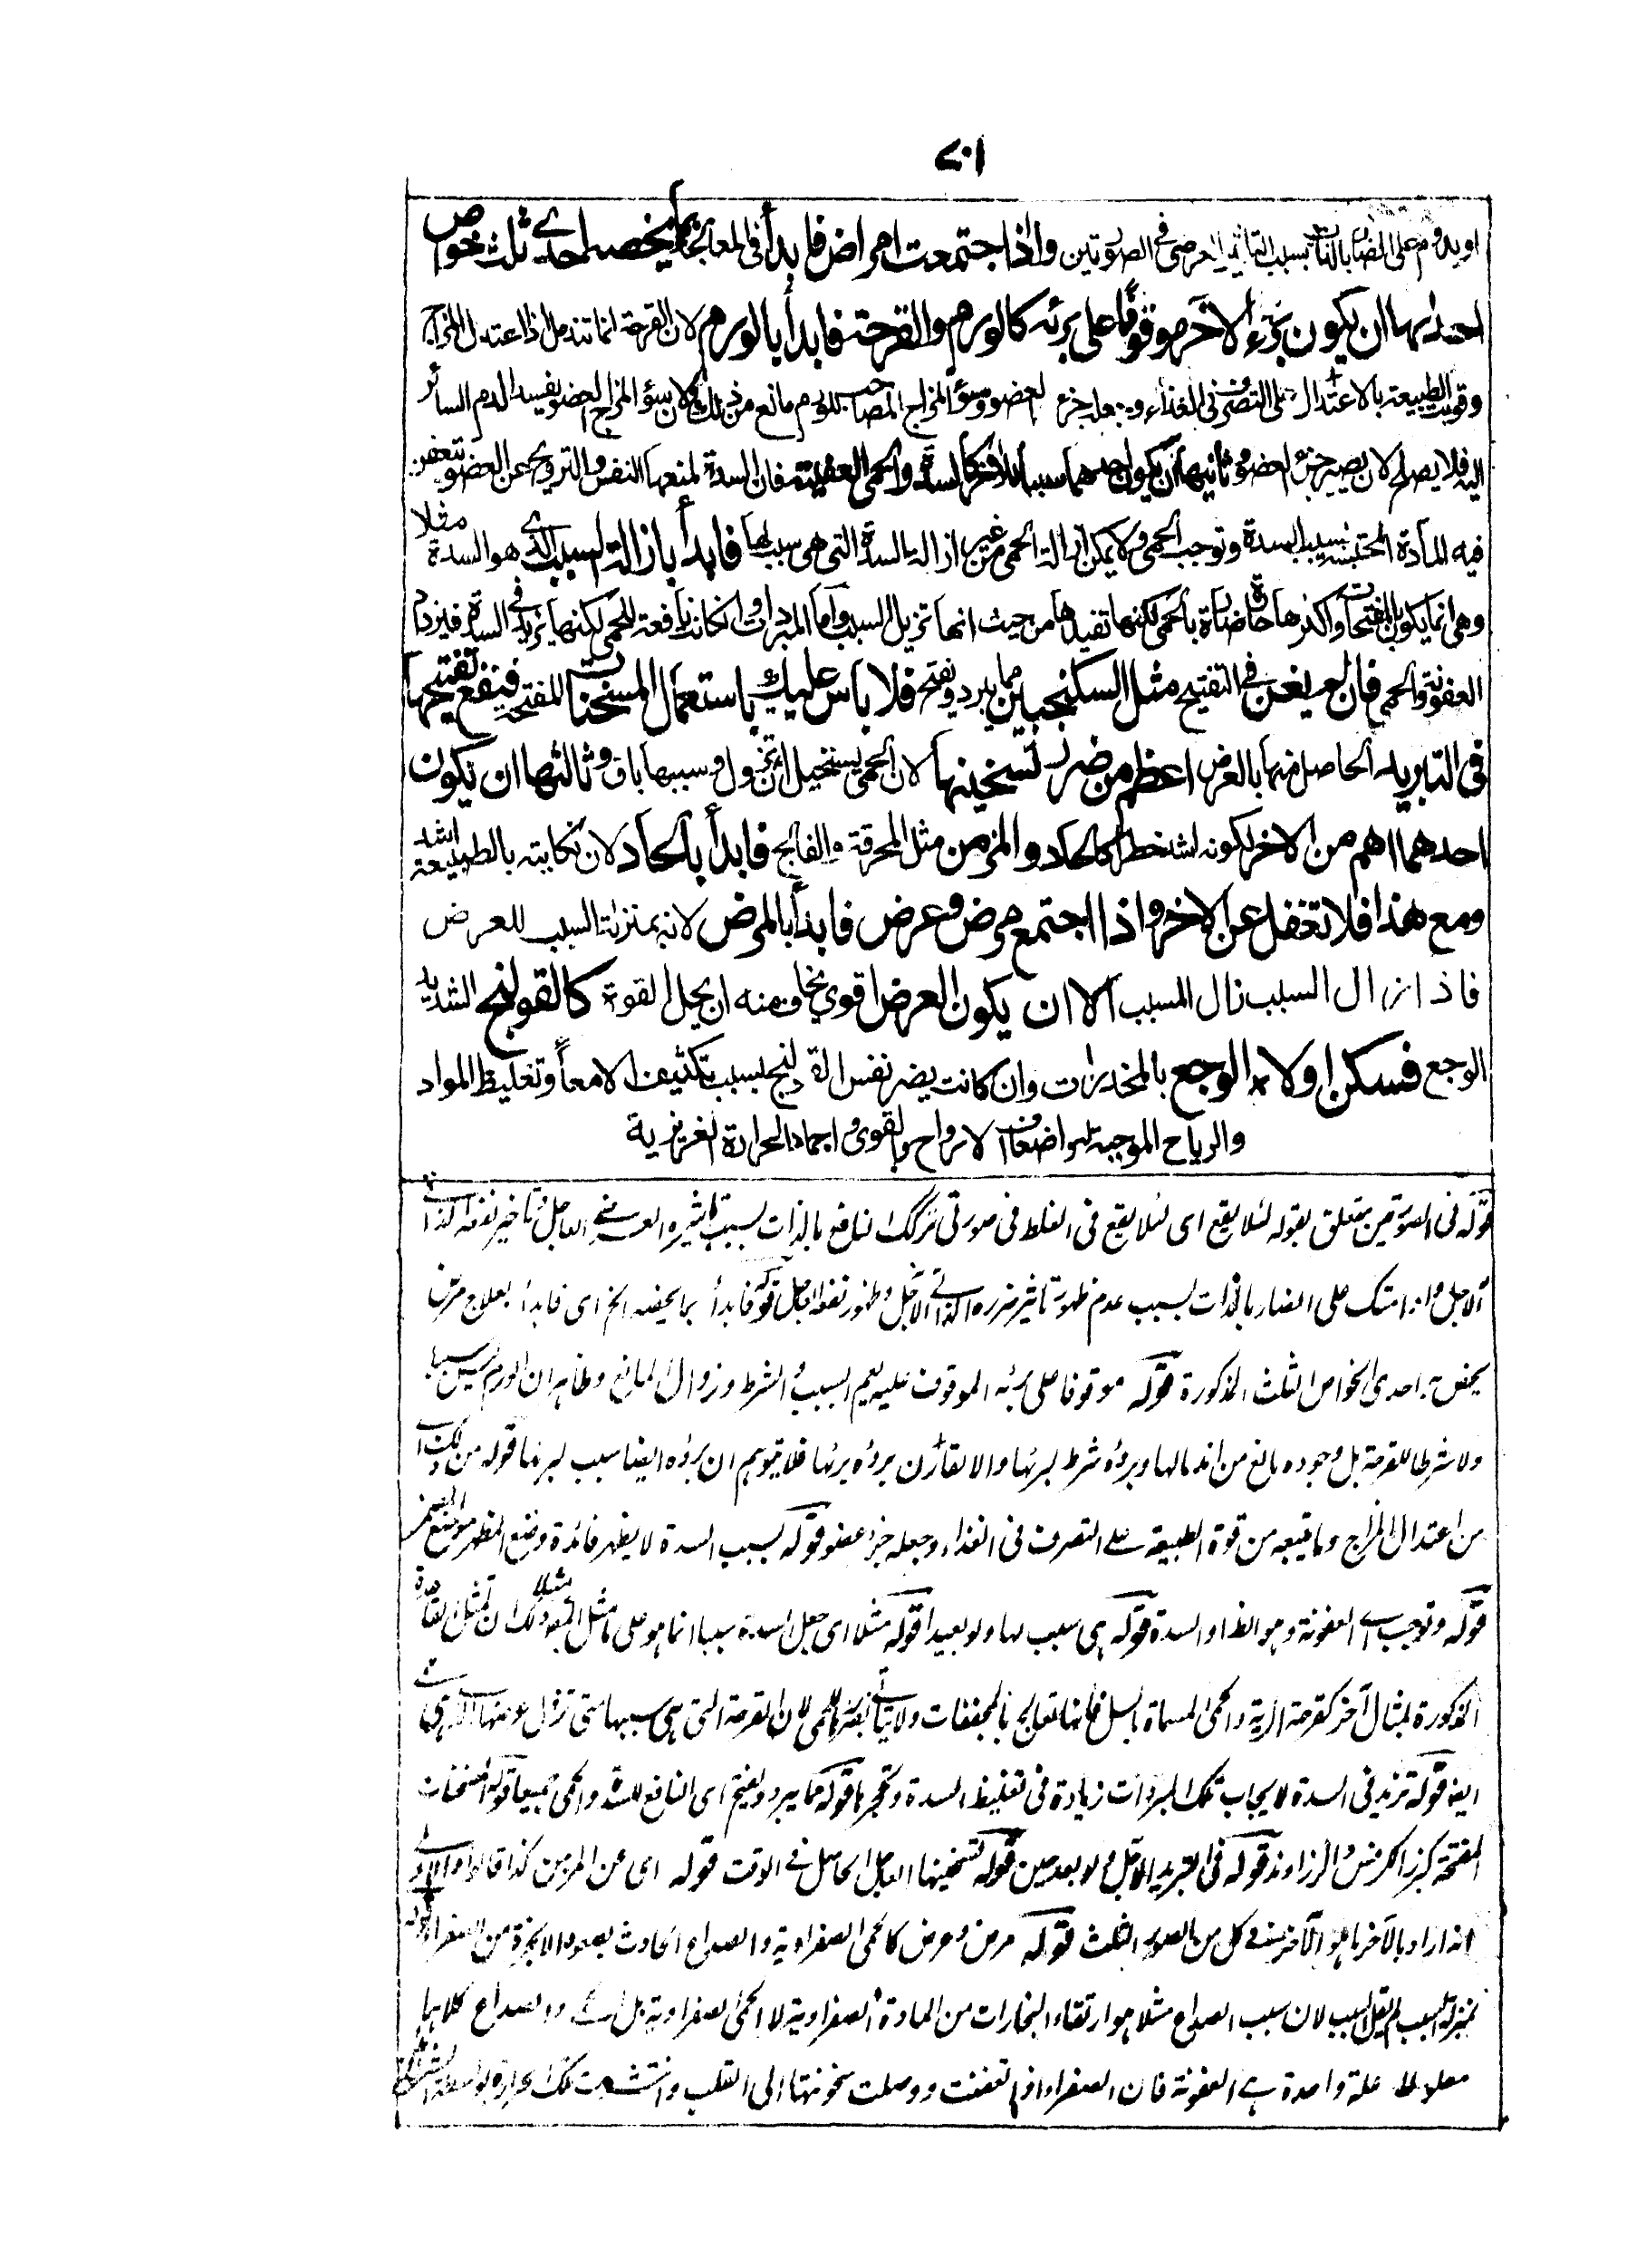 ٧٠١
او يدوم على الضار بالذات بسبب التاثير العرضى فى الصورتين واذا اجتمعت امراض فابدأ فى المعالجة بما يخصه احدى ثلث خواص
احدٰيها ان يكون برء الآخر موقوفًا على برئه كالورم والقرحة فابدأ بالورم لان القرحة انما تندمل اذا اعتدل المزاج
وقويت الطبيعة بالاعتدال على التصرف فى الغذاء وجعله جزء العضو وسوء المزاج المصاحب للورم مانع من ذلك لان سوء المزاج العضو يفسد الدم السائر
اليه فلا يصلح لان يصير جزء العضو وثانيها ان يكون احدهما سببا للآخر كالسدة والحمى العفنية فان السدة لمنعها التنفس والترويح عن العضو يتعفن
فيه المادة المحتبسة بسبب السدة وتوجب الحمى ولا يمكن ازالة الحمى من غير ازالة السدة التى هى سببها فابدأ بازالة السبب الذى هو السدة مثلا
وهى انما يكون بالمفتحات واكثرها حارة ضارة بالحمى لكنها تفيدها من حيث انها تزيل السبب واما المبردات وان كانت نافعة للحمى لكنها تزيد فى السدة فيزداد
العفونة والحمى فان لم يغن فى التفتيح مثل السكنجبين مما يبرد ويفتح فلا باس عليك باستعمال المسخنات المفتحة فنفع تفتيحها
فى التبريد الحاصل منها بالعرض اعظم من ضرر تسخينها لان الحمى يستحيل ان تزول وسببها باق وثالثها ان يكون
احدهما اهم من الآخر لكونه اشد خطرا كالحاد والمزمن مثل المحرقة والفالج فابدأ بالحاد لان نكايته بالطبيعة اشد
ومع هذا فلا تغفل عن الآخر واذا اجتمع مرض وعرض فابدأ بالمرض لانه بمنزلة السبب للعرض
فاذا زال السبب زال المسبب الا ان يكون العرض اقوى يخاف منه ان يحل القوة كالقولنج الشديد
الوجع فسكن اولا الوجع بالمخدرات وان كانت يضر نفس القولنج بسبب تكثيف الامعاء وتغليظ المواد
والرياح الموجبة له واضعاف الارواح والقوى واجماد الحرارة الغريزية
قوله فى الصورتين متعلق بقوله لئلا يقع اى لئلا يقع فى الغلط فى صورتى ترك النافع بالذات بسبب تاثيره العرضى العاجل وتاخير نفعه الذاتى
الآجل والامتناع على الضار بالذات بسبب عدم ظهور تاثير ضرره الذاتى الآجل وظهور نفعه العاجل قوله فابدأ بما يخصه الخ اى فابدأ بعلاج مرض
يختص به احدى الخواص الثلث المذكورة قوله موقوفا على برئه الموقوف عليه يعم السبب والشرط وزوال المانع وظاهر ان الورم ليس سببا
ولا شرطا للقرحة بل وجوده مانع من اندمالها وبروءه شرط لبرئها والا لقارن بروءه برئها فلا يتوهم ان بروءه ايضا سبب لبرئها قوله من ذلك اى
من اعتدال المزاج وما يتبعه من قوة الطبيعة على التصرف فى الغذاء وجعله جزء عضو قوله بسبب السدة لا يظهر فائدة وضع المظهر موضع المضمر
قوله وتوجب اى العفونة وهو الظاهر او السدة قوله هى سبب لها ولو بعيدا قوله مثلا اى جعل السدة سببا انما هو على
المذكورة بمثال آخر كقرحة الرية والحمى المسماة بالسل فانها تعالج بالمجففات ولان القرحة التى هى سببها متى تزول
ايضا قوله تزيد فى السدة لايجاب تلك المبردات زيادة فى تغليظ السدة وتحجرها قوله مما يبرد ويفتح اى النافع للسدة والحمى جميعا قوله المسخنات
المفتحة كبزر الكرفس والرازيانج قوله فى التبريد الآجل ولو بعد حين قوله تسخينها العاجل الحاصل فى الوقت قوله اى عن المزمن كذا قالوا والاولى
انه اراد بالآخر ما هو الآخر فى كل من الصور الثلث قوله مرض وعرض كالحمى الصفراوية والصداع الحادث بصعود الابخرة من الصفراء قوله
بمنزلة السبب لم يقل السبب لان سبب الصداع مثلا هو ارتقاء البخارات من المادة الصفراوية لا الحمى الصفراوية بل الحمى والصداع كلاهما
معلولا علة واحدة هى العفونة فان الصفراء اذا تعفنت ووصلت سخونتها الى القلب وانتشرت تلك الحرارة بواسطة